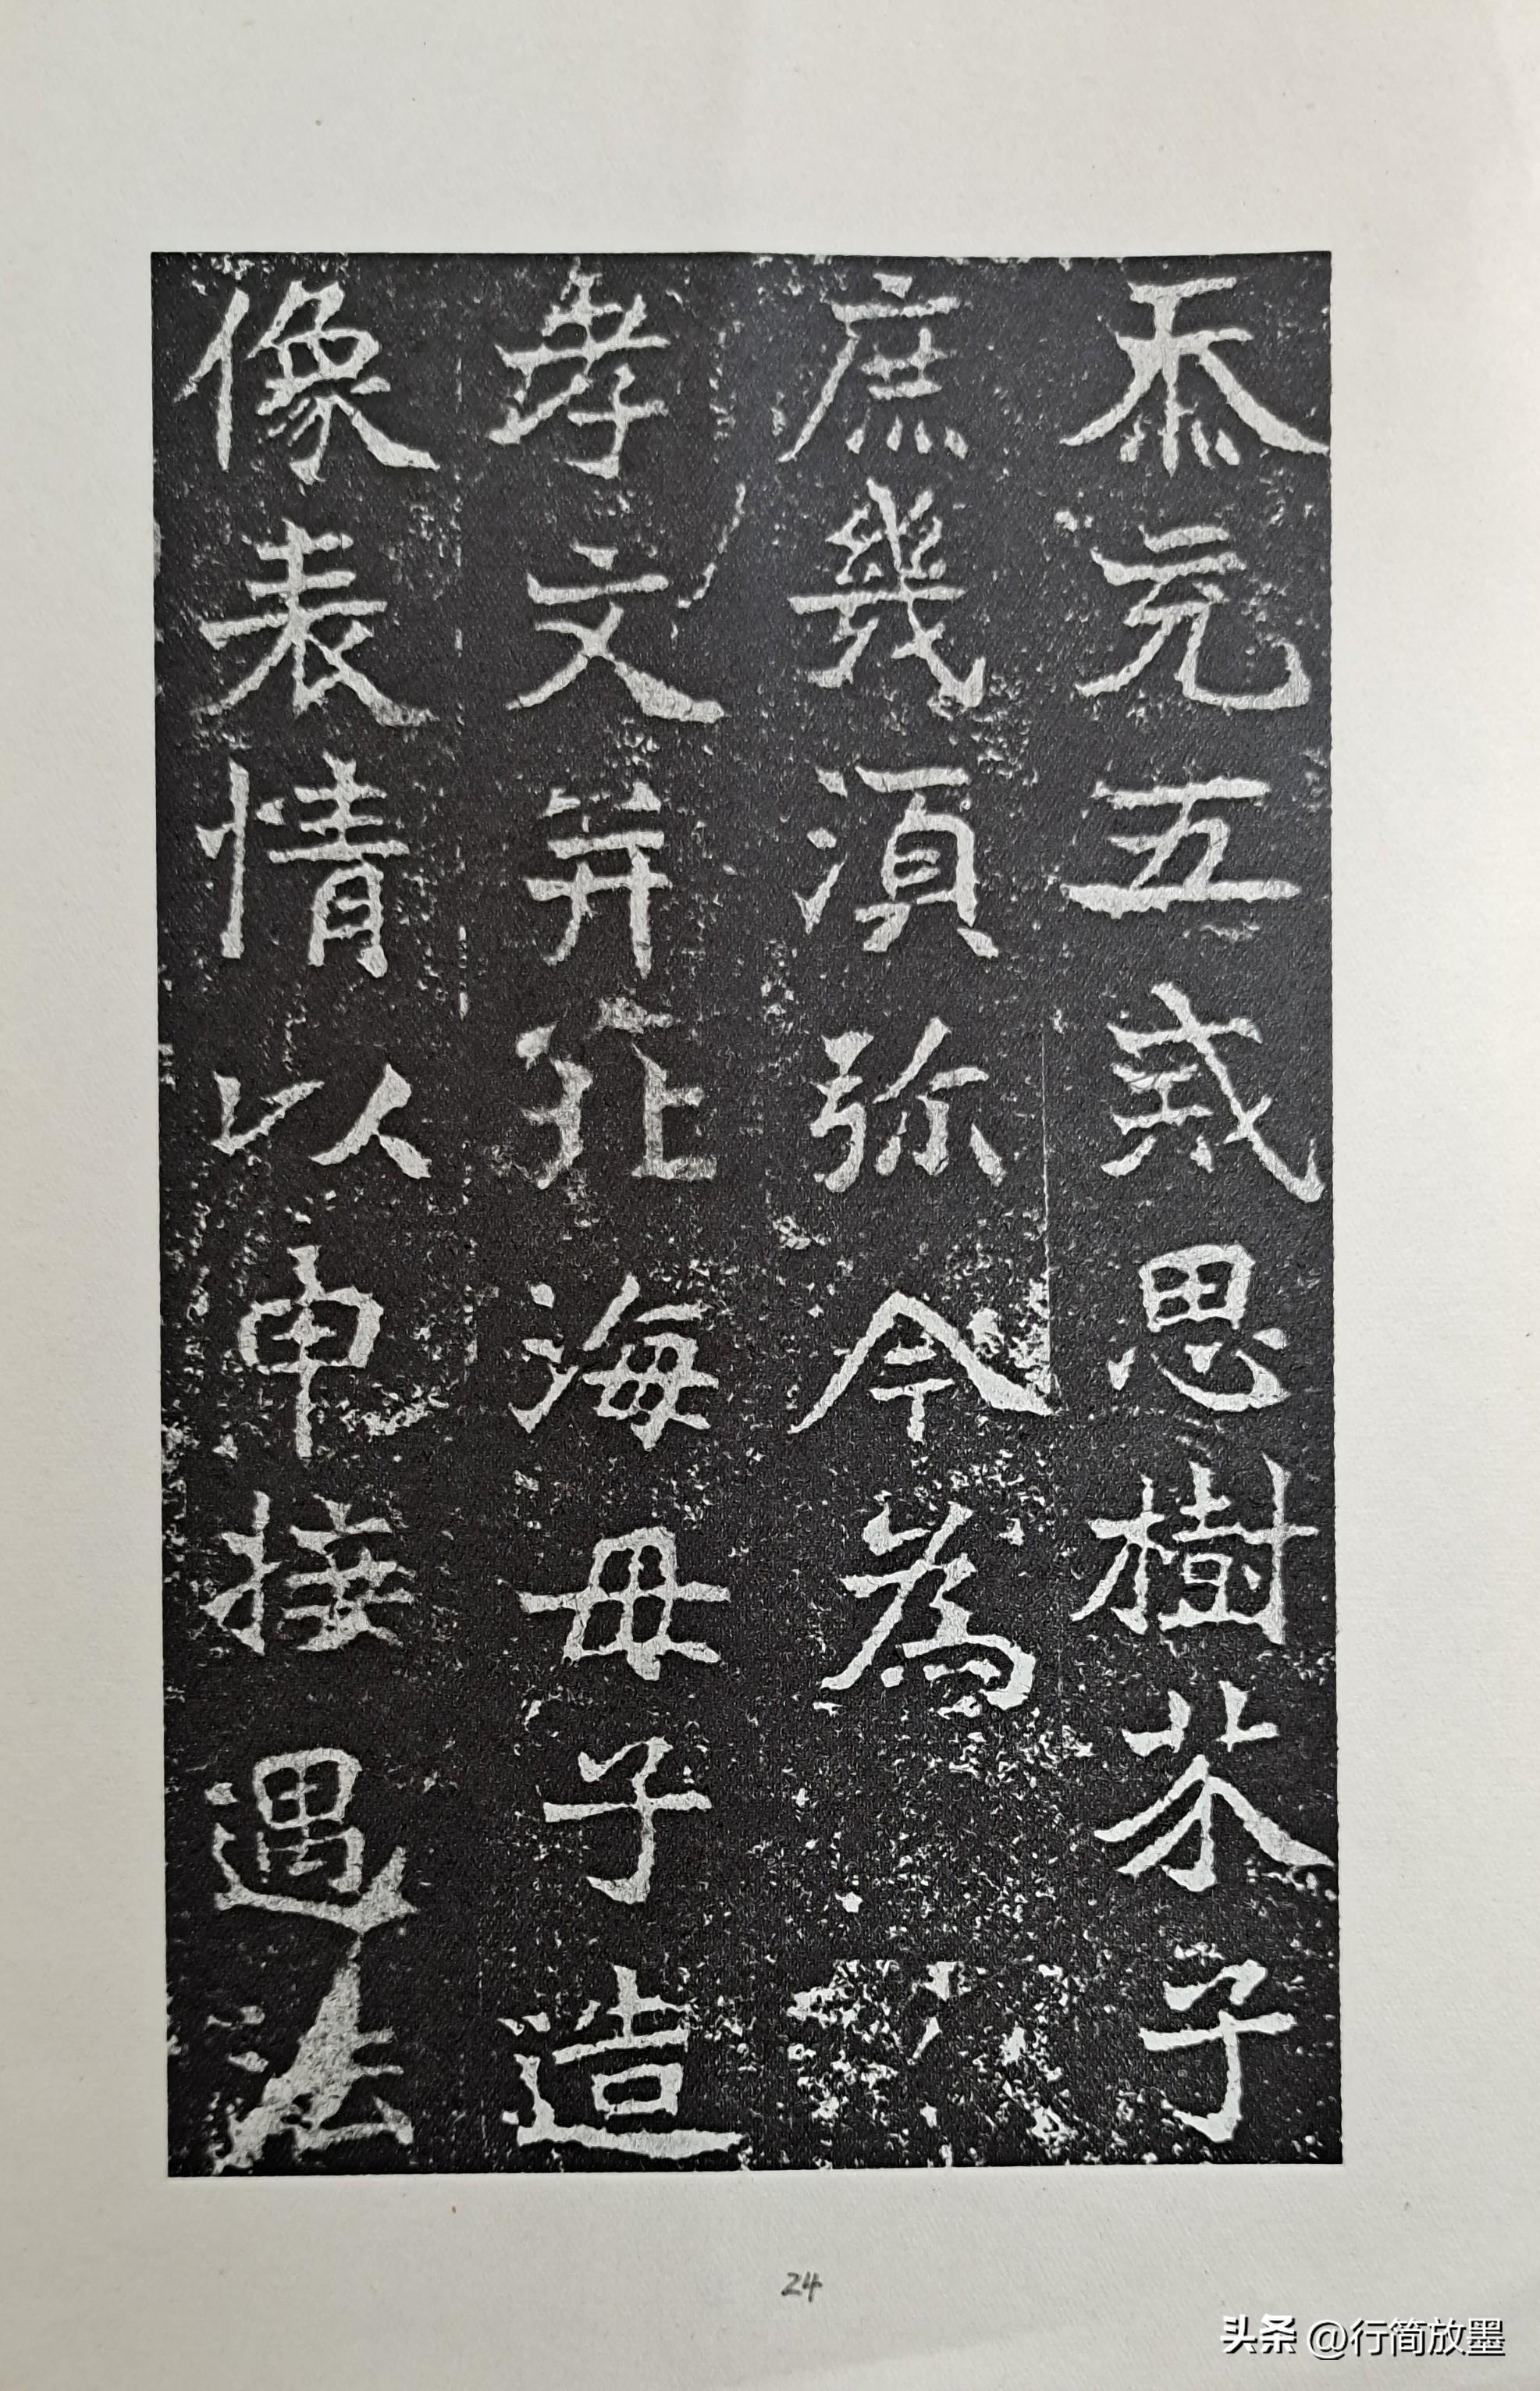 忝充五戒思樹芥子
庶幾須弥今為
孝文并北海母子造
像表情以申接遇法
24
头条 @行简放墨